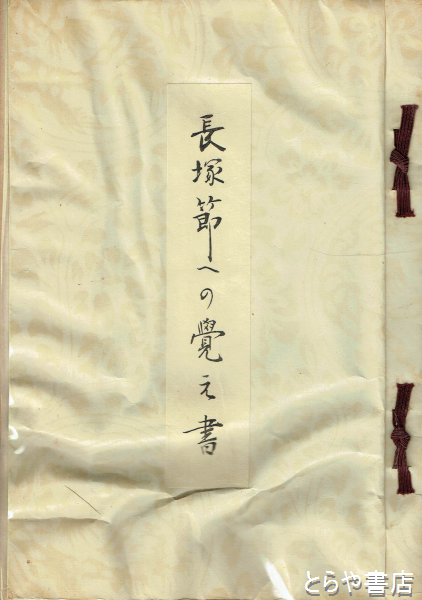 長塚節への覺え書
とらや書店